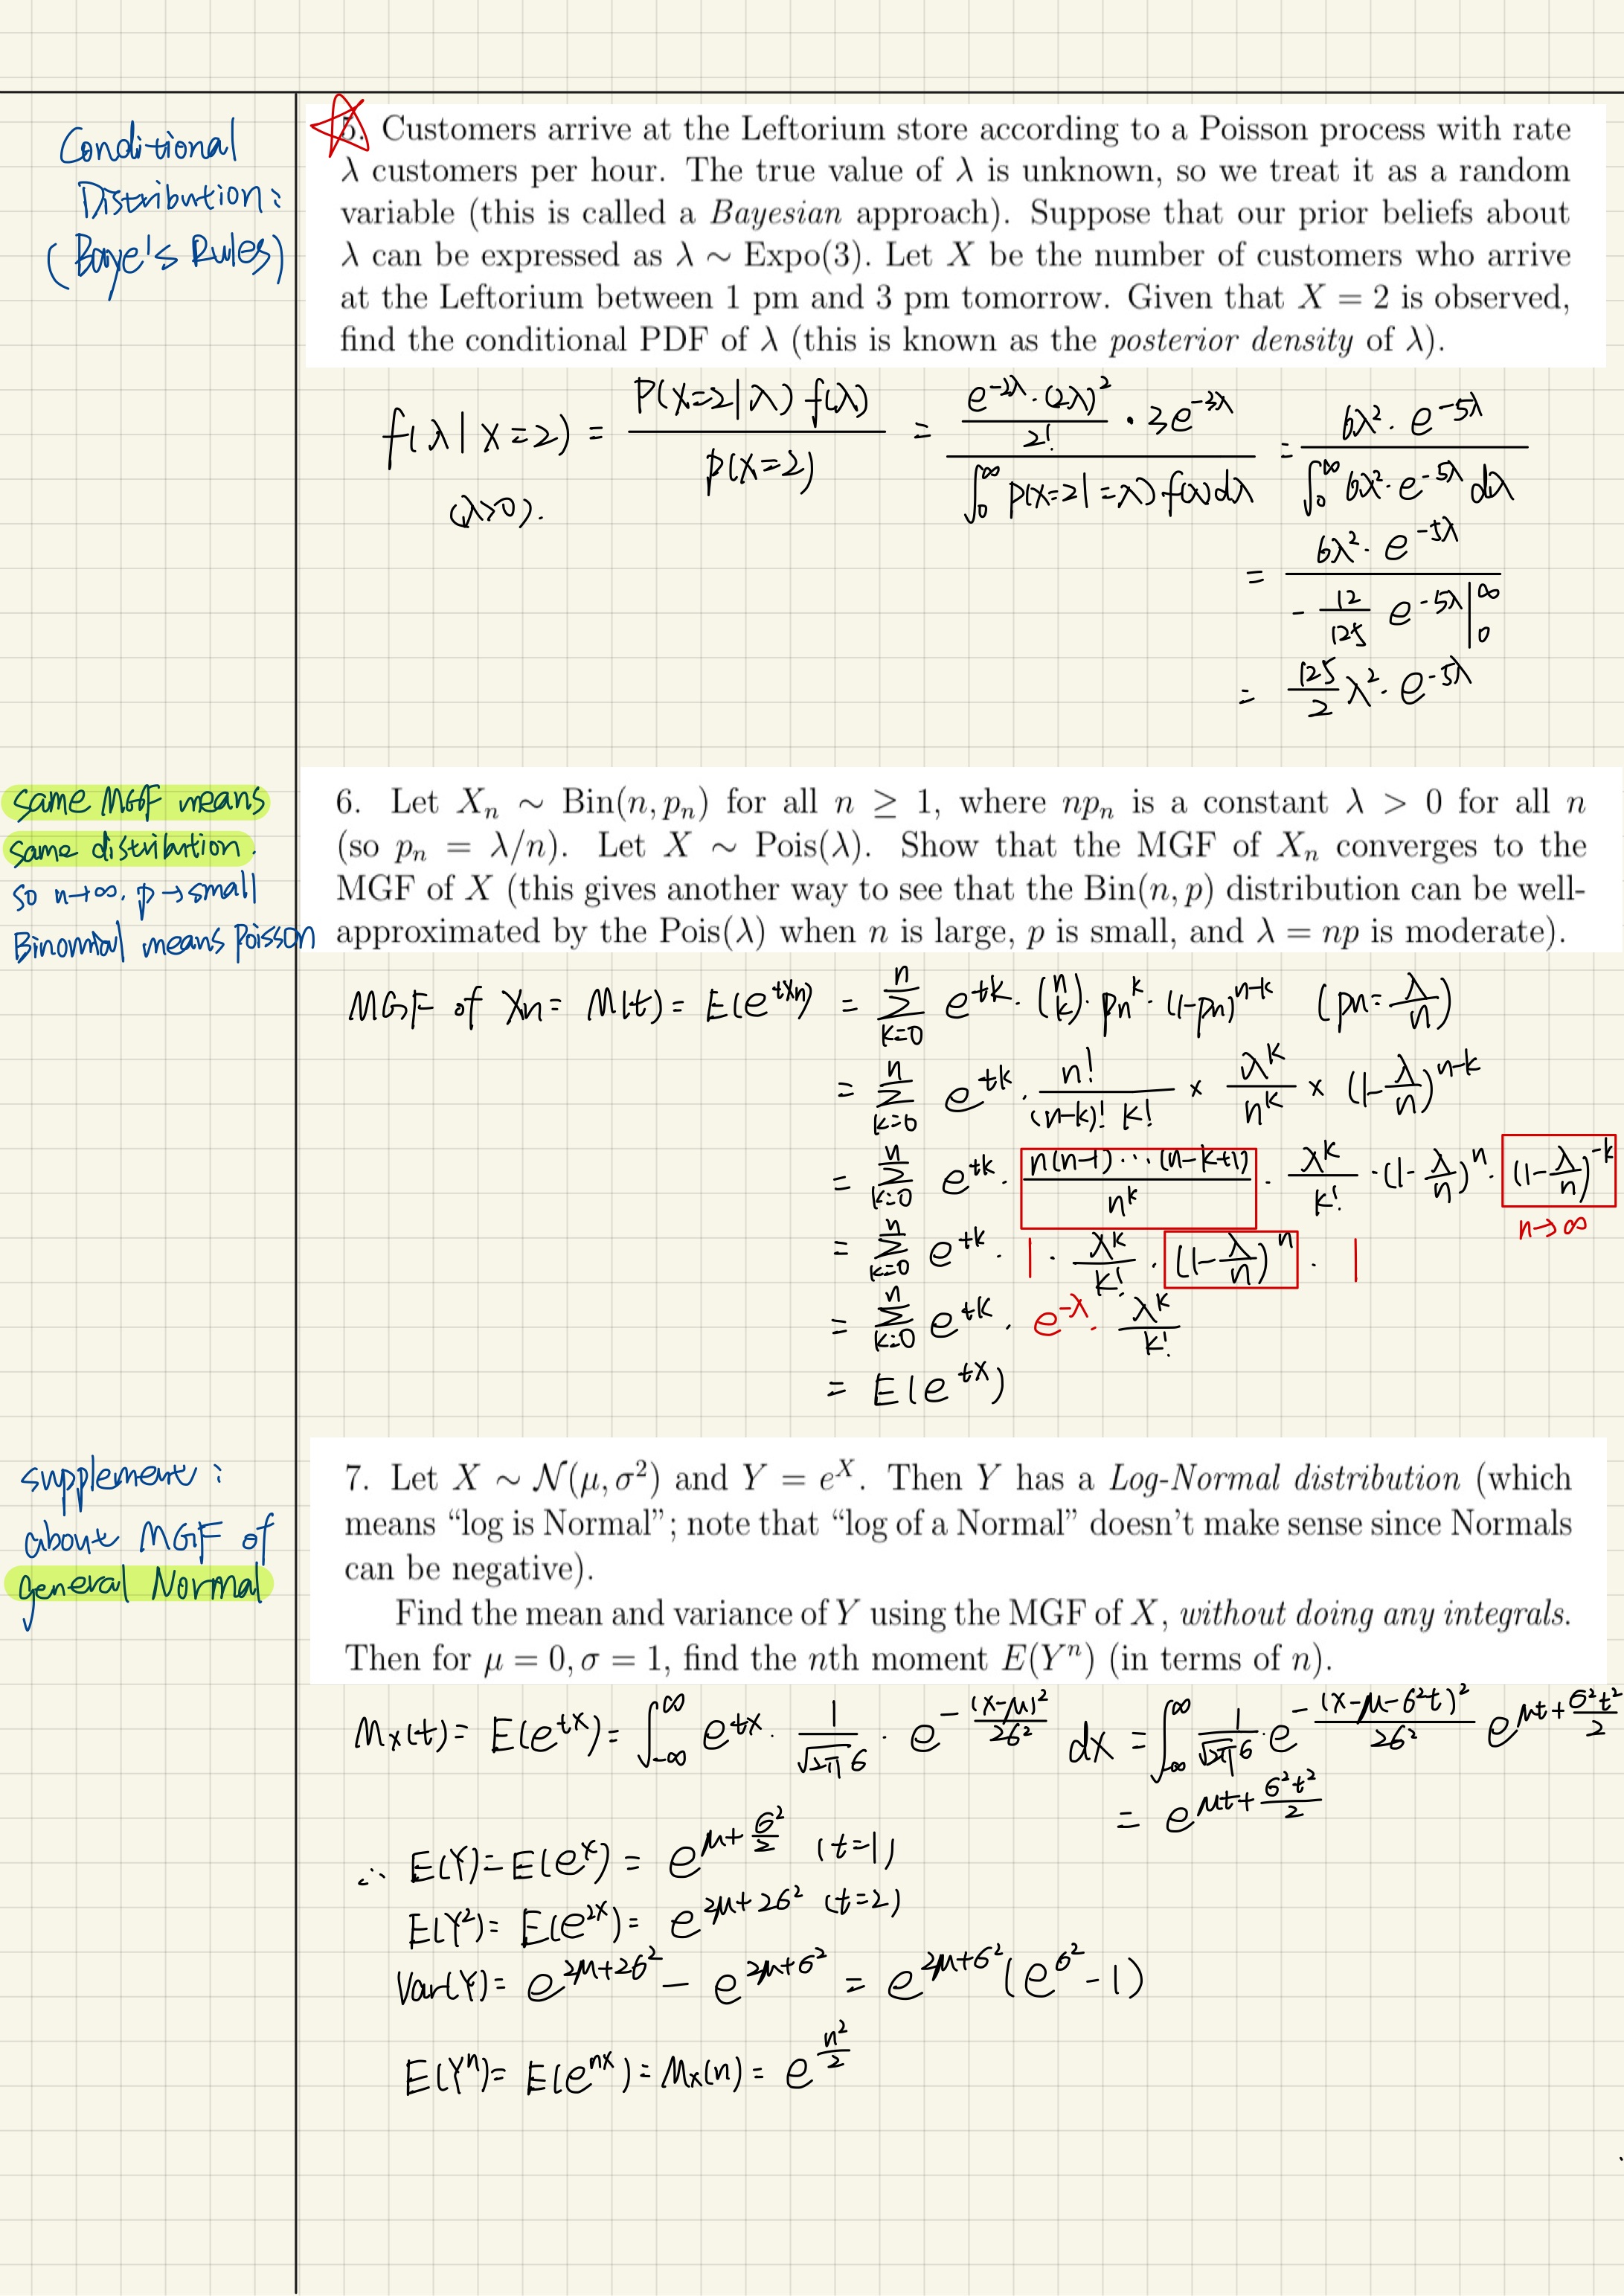 Conditional
Distribution:
(Baye's Rules)
5. Customers arrive at the Leftorium store according to a Poisson process with rate
λ customers per hour. The true value of λ is unknown, so we treat it as a random
variable (this is called a Bayesian approach). Suppose that our prior beliefs about
λ can be expressed as λ ∼ Expo(3). Let X be the number of customers who arrive
at the Leftorium between 1 pm and 3 pm tomorrow. Given that X = 2 is observed,
find the conditional PDF of λ (this is known as the posterior density of λ).
f(λ|X=2) = P(X=2|λ) f(λ) / P(X=2) = (e^{-2λ}·(2λ)²/2! · 3e^{-3λ}) / ∫₀^∞ P(X=2|=λ)·f(λ)dλ = 6λ²·e^{-5λ} / ∫₀^∞ 6λ²·e^{-5λ} dλ
(λ>0).
= 6λ²·e^{-5λ} / (-12/125 e^{-5λ}|₀^∞)
= 125/2 λ²·e^{-5λ}
same MGF means
same distribution.
so n→∞, p→small
Binomial means Poisson
6. Let Xₙ ∼ Bin(n, pₙ) for all n ≥ 1, where npₙ is a constant λ > 0 for all n
(so pₙ = λ/n). Let X ∼ Pois(λ). Show that the MGF of Xₙ converges to the
MGF of X (this gives another way to see that the Bin(n, p) distribution can be well-
approximated by the Pois(λ) when n is large, p is small, and λ = np is moderate).
MGF of Xn = M(t) = E(e^{tXn}) = Σ_{k=0}^{n} e^{tk}·(n k)·pn^k·(1-pn)^{n-k} (pn = λ/n)
= Σ_{k=0}^{n} e^{tk}·n!/((n-k)! k!) × λ^k/n^k × (1-λ/n)^{n-k}
= Σ_{k=0}^{n} e^{tk}·n(n-1)···(n-k+1)/n^k · λ^k/k! ·(1-λ/n)^n·(1-λ/n)^{-k}
n→∞
= Σ_{k=0}^{n} e^{tk}·1·λ^k/k!·(1-λ/n)^n·1
= Σ_{k=0}^{n} e^{tk}·e^{-λ}·λ^k/k!
= E(e^{tX})
supplement:
about MGF of
general Normal
7. Let X ∼ N(μ, σ²) and Y = e^X. Then Y has a Log-Normal distribution (which
means “log is Normal”; note that “log of a Normal” doesn't make sense since Normals
can be negative).
Find the mean and variance of Y using the MGF of X, without doing any integrals.
Then for μ = 0, σ = 1, find the nth moment E(Yⁿ) (in terms of n).
Mx(t) = E(e^{tX}) = ∫_{-∞}^{∞} e^{tx}·1/(√2π σ)·e^{-(x-μ)²/2σ²} dx = ∫_{-∞}^{∞} 1/(√2π σ)·e^{-(x-μ-σ²t)²/2σ²} e^{μt+σ²t²/2}
= e^{μt+σ²t²/2}
∴ E(Y) = E(e^X) = e^{μ+σ²/2} (t=1)
E(Y²) = E(e^{2X}) = e^{2μ+2σ²} (t=2)
Var(Y) = e^{2μ+2σ²} - e^{2μ+σ²} = e^{2μ+σ²}(e^{σ²}-1)
E(Yⁿ) = E(e^{nX}) = Mx(n) = e^{n²/2}